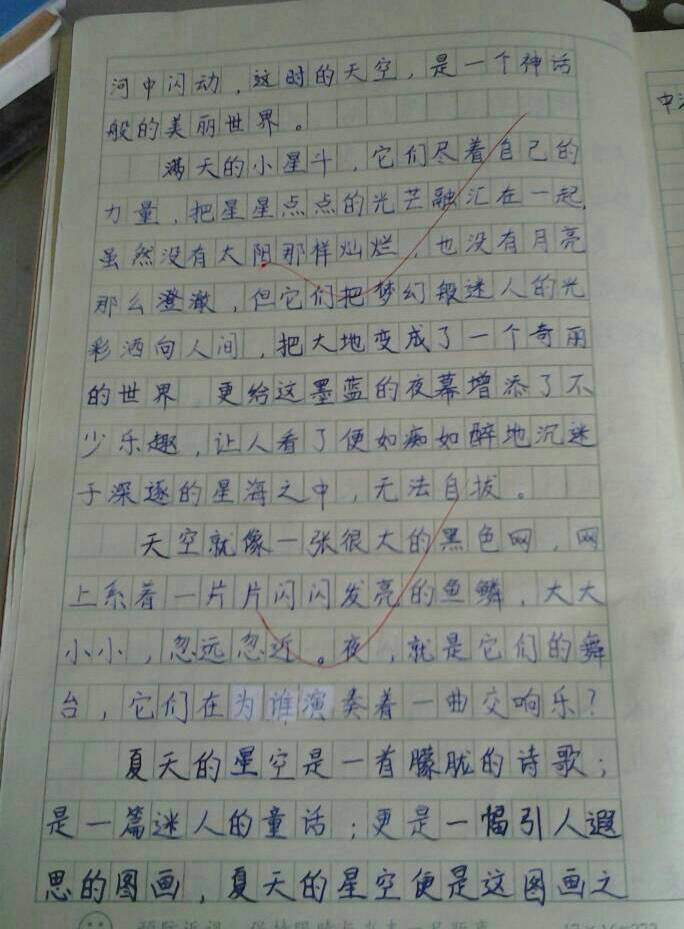 河中闪动，这时的天空，是一个神话
般的美丽世界。
满天的小星斗，它们尽着自己的
力量，把星星点点的光芒融汇在一起，
虽然没有太阳那样灿烂，也没有月亮
那么澄澈，但它们把梦幻般迷人的光
彩洒向人间，把大地变成了一个奇丽
的世界 更给这墨蓝的夜幕增添了不
少乐趣，让人看了便如痴如醉地沉迷
于深邃的星海之中，无法自拔。
天空就像一张很大的黑色网，网
上系着一片片闪闪发亮的鱼鳞，大大
小小，忽远忽近。夜，就是它们的舞
台，它们在为谁演奏着一曲交响乐？
夏天的星空是一首朦胧的诗歌；
是一篇迷人的童话；更是一幅引人遐
思的图画，夏天的星空便是这图画之
中